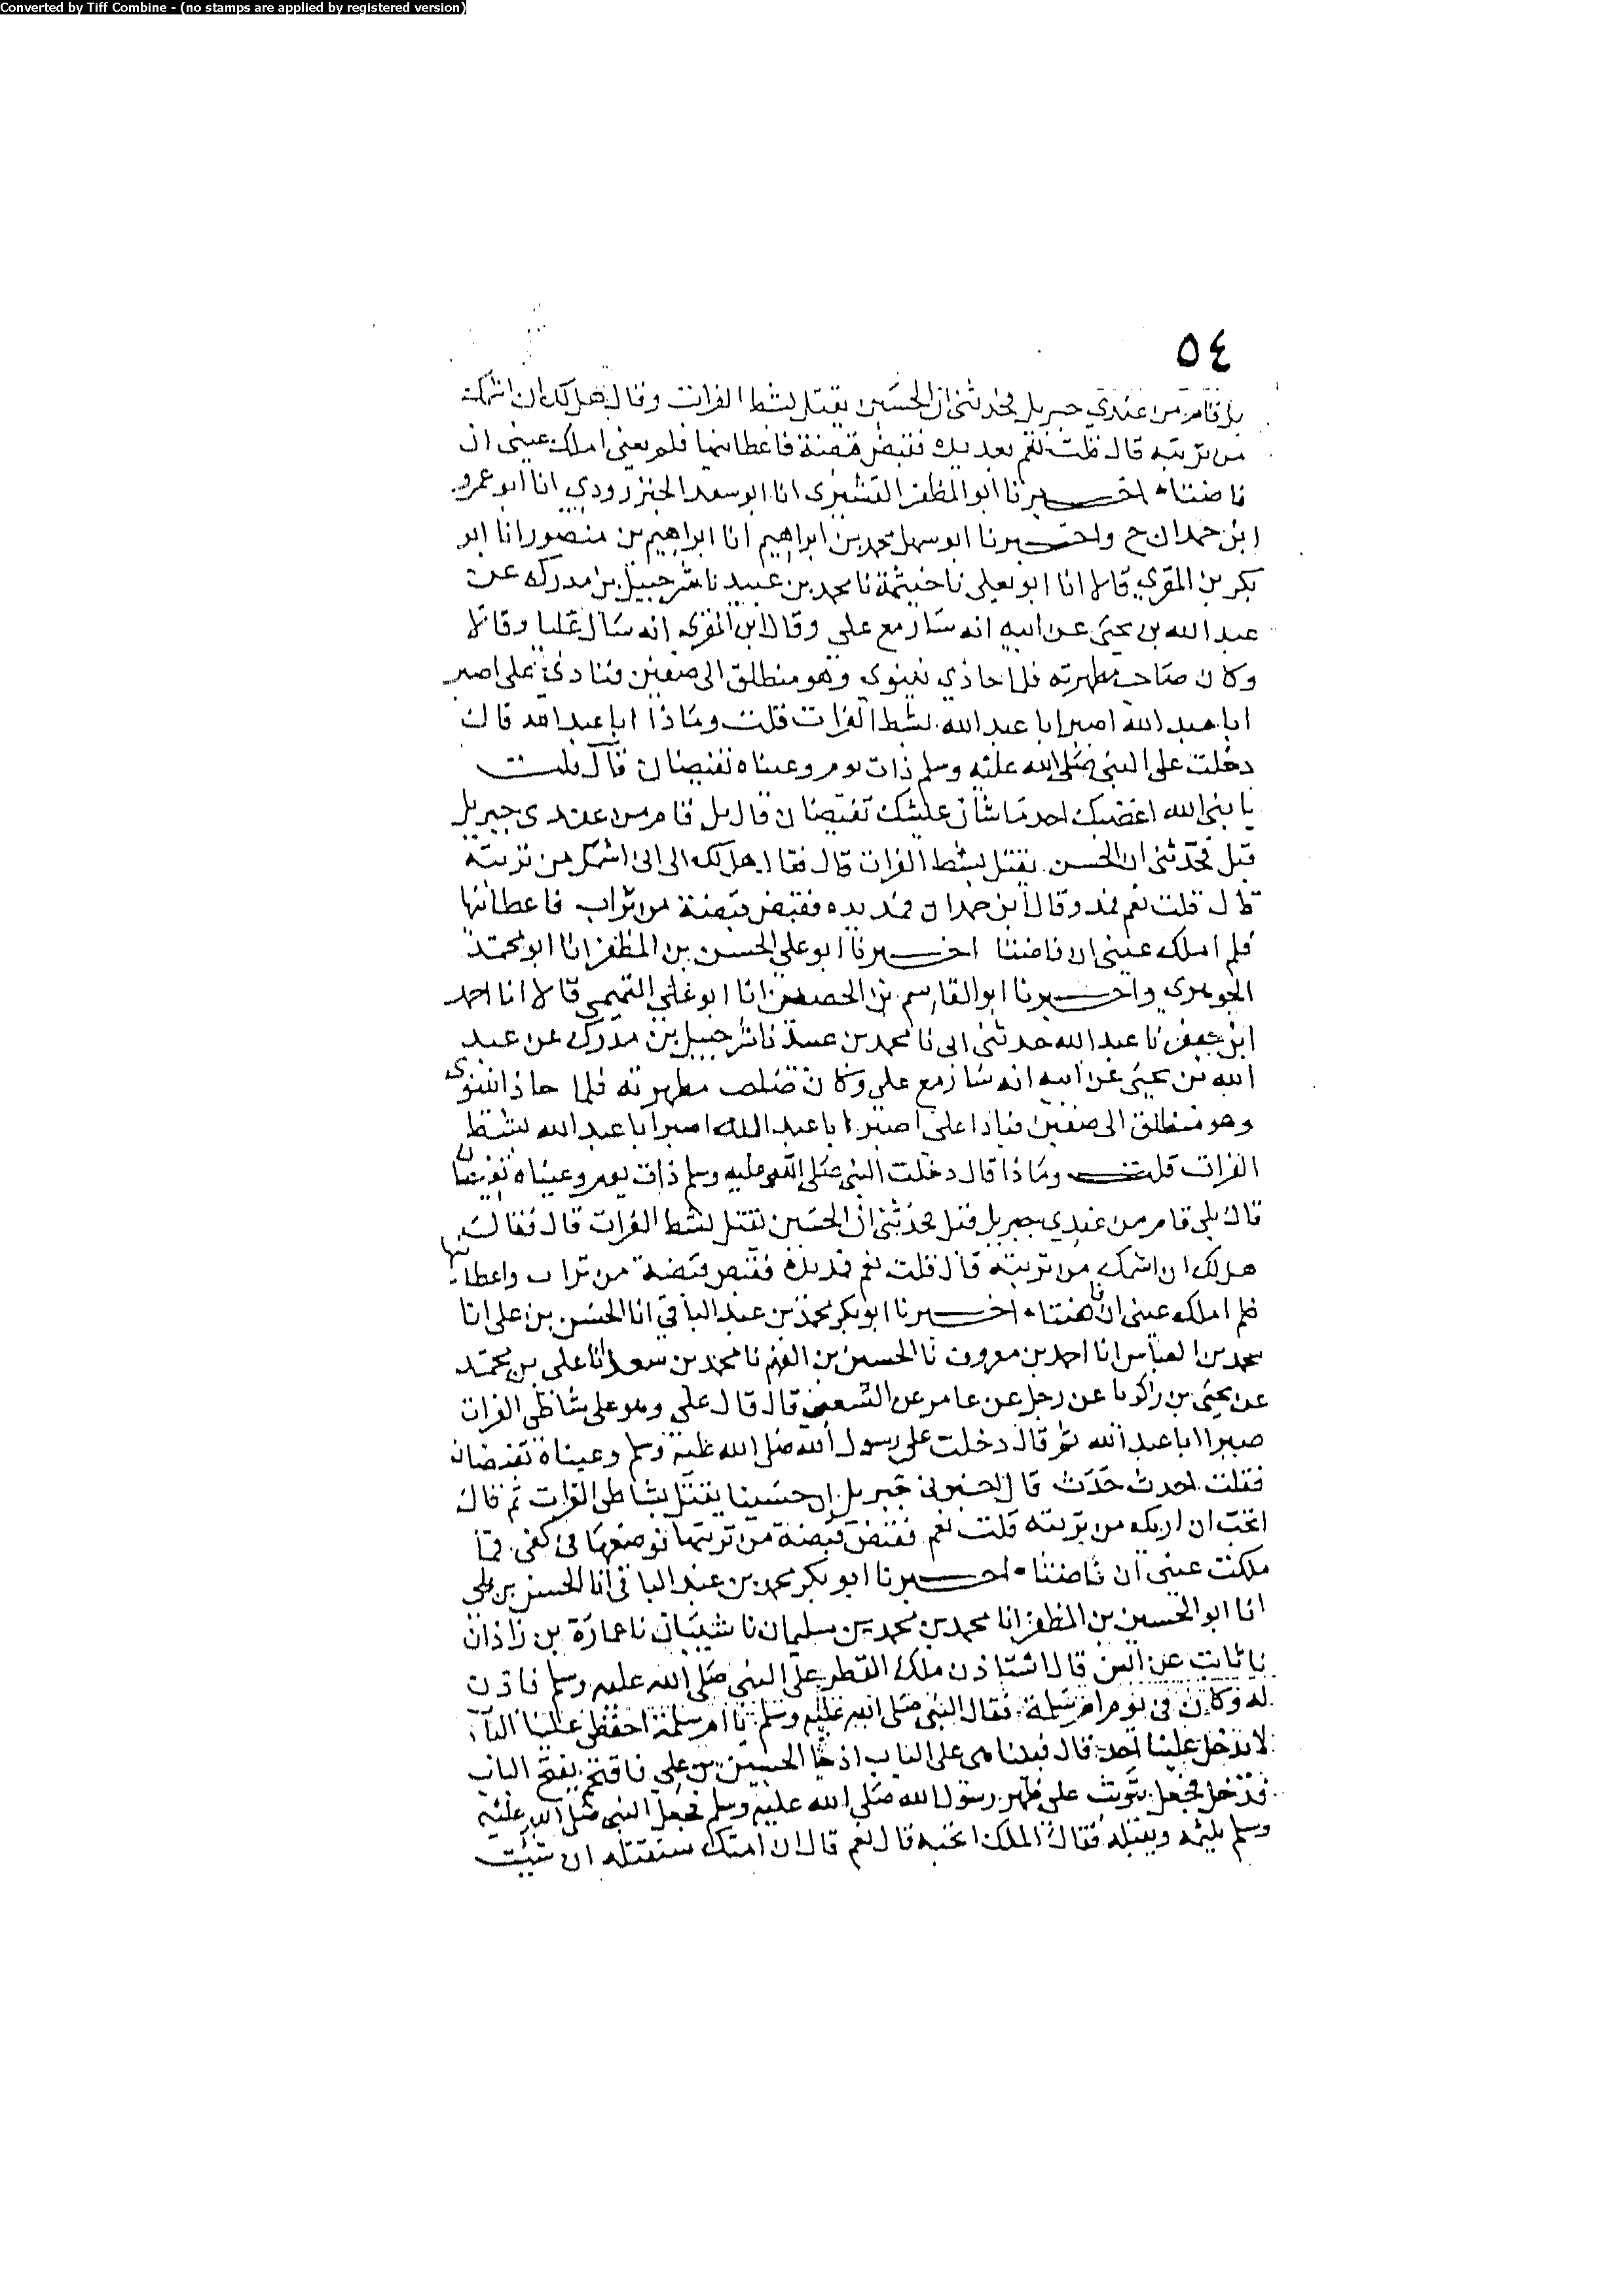 Converted by Tiff Combine - (no stamps are applied by registered version)
٥٤
بل قام من عندي جبريل فحدثني ان الحسين يقتل بشط الفرات وقال هل لك ان اشمك
من تربته قال قلت نعم بعد يده فقبض قبضة فاعطانيها فلم يعني املك عيني ان
فاضتا اخبرنا ابو المظفر القشيرى انا ابو سعد الجنزرودي انا ابو عمرو
ابن حمدان ح واخبرنا ابو سهل محمد بن ابراهيم انا ابراهيم بن منصور انا ابو
بكر بن المقري قالا انا ابو يعلى نا خيثمة نا محمد بن عبيد نا شرحبيل بن مدرك عن
عبد الله بن يحيى عن ابيه انه سار مع علي وقال ابن المقرى انه سال عليا وقالا
وكان صاحب مطهرته فلما حاذي نينوى وهو منطلق الى صفين فنادى علي اصبر
ابا عبد الله اصبر ابا عبد الله بشط الفرات قلت وماذا ابا عبد الله قال
دخلت على النبي صلى الله عليه وسلم ذات يوم وعيناه تفيضان قال قلت
يا نبي الله اغضبك احد ما شان عينيك تفيضان قال بل قام من عندى جبريل
قبل فحدثني ان الحسين يقتل بشط الفرات قال فقال هل لك الى ان اشمك من تربته
قال قلت نعم فمد وقال ابن حمدان فمد يده فقبض قبضة من تراب فاعطانيها
فلم املك عيني ان فاضتا اخبرنا ابو علي الحسن بن المظفر انا ابو محمد
الجوهري واخبرنا ابو القاسم بن الحصين انا ابو علي التميمي قالا انا احمد
ابن جعفر نا عبد الله حدثني ابي نا محمد بن عبيد نا شرحبيل بن مدرك عن عبد
الله بن يحيى عن ابيه انه سار مع علي وكان صاحب مطهرته فلما حاذا نينوى
وهو منطلق الى صفين فنادا علي اصبر ابا عبد الله اصبر ابا عبد الله بشط
الفرات قلت وماذا قال دخلت النبي صلى الله عليه وسلم ذات يوم وعيناه تفيضان
قال بلى قام من عندي جبريل قبل فحدثني ان الحسين يقتل بشط الفرات قال فقال
هل لك ان اشمك من تربته قال قلت نعم فمد يده فقبض قبضة من تراب واعطانيها
فلم املك عيني ان فاضتا اخبرنا ابو بكر محمد بن عبد الباقي انا الحسن بن علي انا
محمد بن العباس انا احمد بن معروف نا الحسين بن الفهم نا محمد بن سعد انا علي بن محمد
عن يحيى بن زكريا عن رجل عن عامر عن الشعبي قال قال علي وهو على شاطئ الفرات
صبرا ابا عبد الله ثم قال دخلت على رسول الله صلى الله عليه وسلم وعيناه تفيضان
فقلت احدث حدث قال اخبرني جبريل ان حسينا يقتل بشاطئ الفرات ثم قال
اتحب ان اريك من تربته قلت نعم فقبض قبضة من تربتها فوضعها في كفي فما
ملكت عيني ان فاضتا اخبرنا ابو بكر محمد بن عبد الباقي انا الحسن بن علي
انا ابو الحسين بن المظفر انا محمد بن محمد بن سليمان نا شيبان نا عمارة بن زاذان
نا ثابت عن انس قال استاذن ملك القطر على النبي صلى الله عليه وسلم فاذن
له وكان في يوم ام سلمة فقال النبي صلى الله عليه وسلم يا ام سلمة احفظي علينا الباب
لا يدخل علينا احد قال فبينا هي على الباب اذ جا الحسين بن علي فاقتحم ففتح الباب
فدخل فجعل يتوثب على ظهر رسول الله صلى الله عليه وسلم فجعل النبي صلى الله عليه
وسلم يلثمه ويقبله فقال الملك اتحبه قال نعم قال ان امتك ستقتله ان شئت